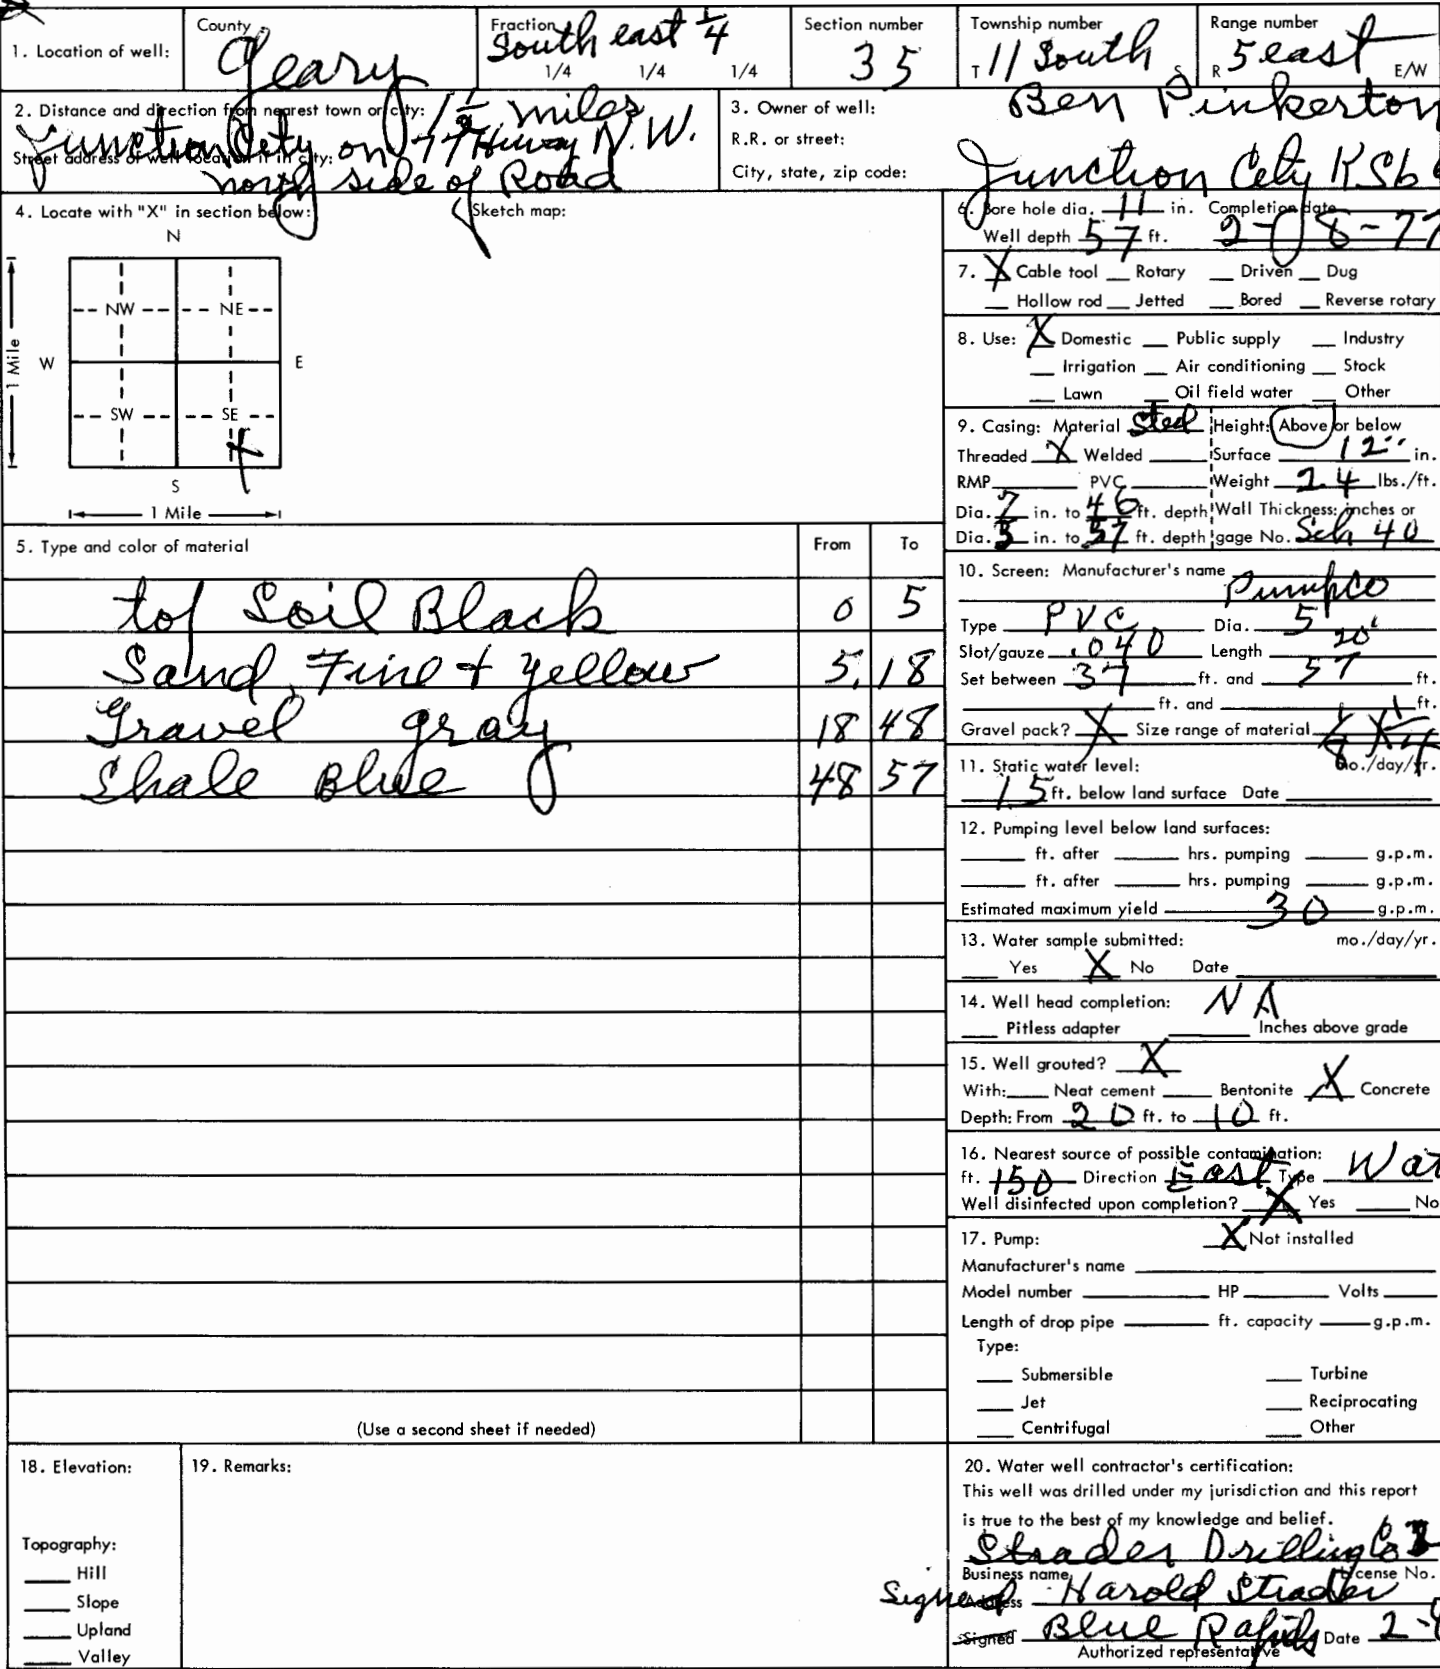 1. Location of well: County Geary Fraction South east 1/4 1/4 1/4 1/4 Section number 35 Township number T 11 South S Range number R 5 east E/W
2. Distance and direction from nearest town or city: 1 1/2 miles
Junction City on 77 Hiway N.W.
Street address of well location if in city:
north side of Road
3. Owner of well: Ben Pinkerton
R.R. or street:
City, state, zip code: Junction City KS 6
4. Locate with "X" in section below: Sketch map:
N
NW NE
1 Mile W E
SW SE
X
S
1 Mile
5. Type and color of material From To
top Soil Black 0 5
Sand, Fine + yellow 5 18
Gravel gray 18 48
Shale Blue 48 57
(Use a second sheet if needed)
6. Bore hole dia. 11 in. Completion date
Well depth 57 ft. 2-8-77
7. X Cable tool Rotary Driven Dug
Hollow rod Jetted Bored Reverse rotary
8. Use: X Domestic Public supply Industry
Irrigation Air conditioning Stock
Lawn Oil field water Other
9. Casing: Material Steel Height: Above or below
Threaded X Welded Surface 12" in.
RMP PVC Weight 24 lbs./ft.
Dia. 7 in. to 46 ft. depth Wall Thickness: inches or
Dia. 5 in. to 57 ft. depth gage No. Sch 40
10. Screen: Manufacturer's name
PumpCo
Type PVC Dia. 5
Slot/gauze .040 Length 20'
Set between 37 ft. and 57 ft.
ft. and ft.
Gravel pack? X Size range of material 1/8 X 1/4
11. Static water level: mo./day/yr.
15 ft. below land surface Date
12. Pumping level below land surfaces:
ft. after hrs. pumping g.p.m.
ft. after hrs. pumping g.p.m.
Estimated maximum yield 30 g.p.m.
13. Water sample submitted: mo./day/yr.
Yes X No Date
14. Well head completion: NA
Pitless adapter Inches above grade
15. Well grouted? X
With: Neat cement Bentonite X Concrete
Depth: From 20 ft. to 10 ft.
16. Nearest source of possible contamination:
ft. 150 Direction East Type Wat
Well disinfected upon completion? X Yes No
17. Pump: X Not installed
Manufacturer's name
Model number HP Volts
Length of drop pipe ft. capacity g.p.m.
Type:
Submersible Turbine
Jet Reciprocating
Centrifugal Other
18. Elevation:
Topography:
Hill
Slope
Upland
Valley
19. Remarks:
20. Water well contractor's certification:
This well was drilled under my jurisdiction and this report
is true to the best of my knowledge and belief.
Strader Drilling Co
Business name License No.
Signed Address Harold Strader
Signed Blue Rapids Date 2-
Authorized representative